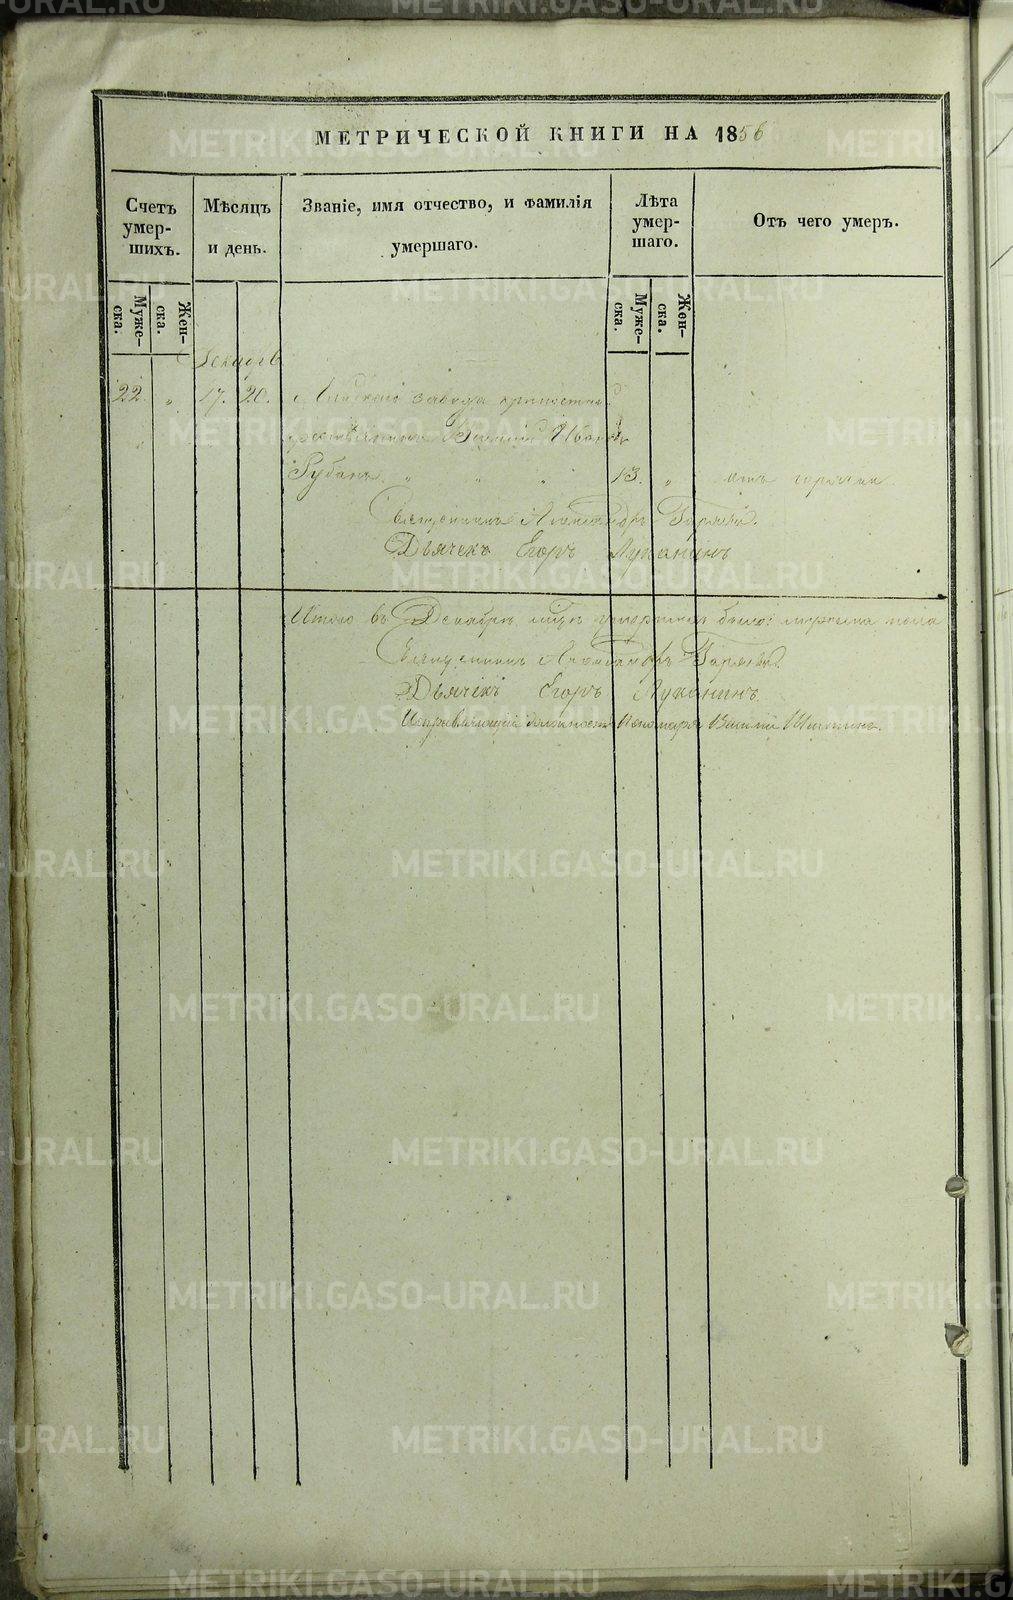 МЕТРИЧЕСКОЙ КНИГИ НА 1856
Счетъ умер-шихъ.
Мѣсяцъ и день.
Званіе, имя отчество, и фамилія умершаго.
Лѣта умер-шаго.
Отъ чего умеръ.
Муже-ска.
Жен-ска.
Муже-ска.
Жен-ска.
Декабрь
22. " 17. 20. завода
Василій Ивановъ
13. " отъ горячки
Священникъ Александръ
Дьячекъ Егоръ Луканинъ
Итого въ Декабрѣ умершихъ было: мужеска пола
Священникъ Александръ
Дьячекъ Егоръ Луканинъ.
Исправляющій должность Пономаря Василій
METRIKI.GASO-URAL.RU